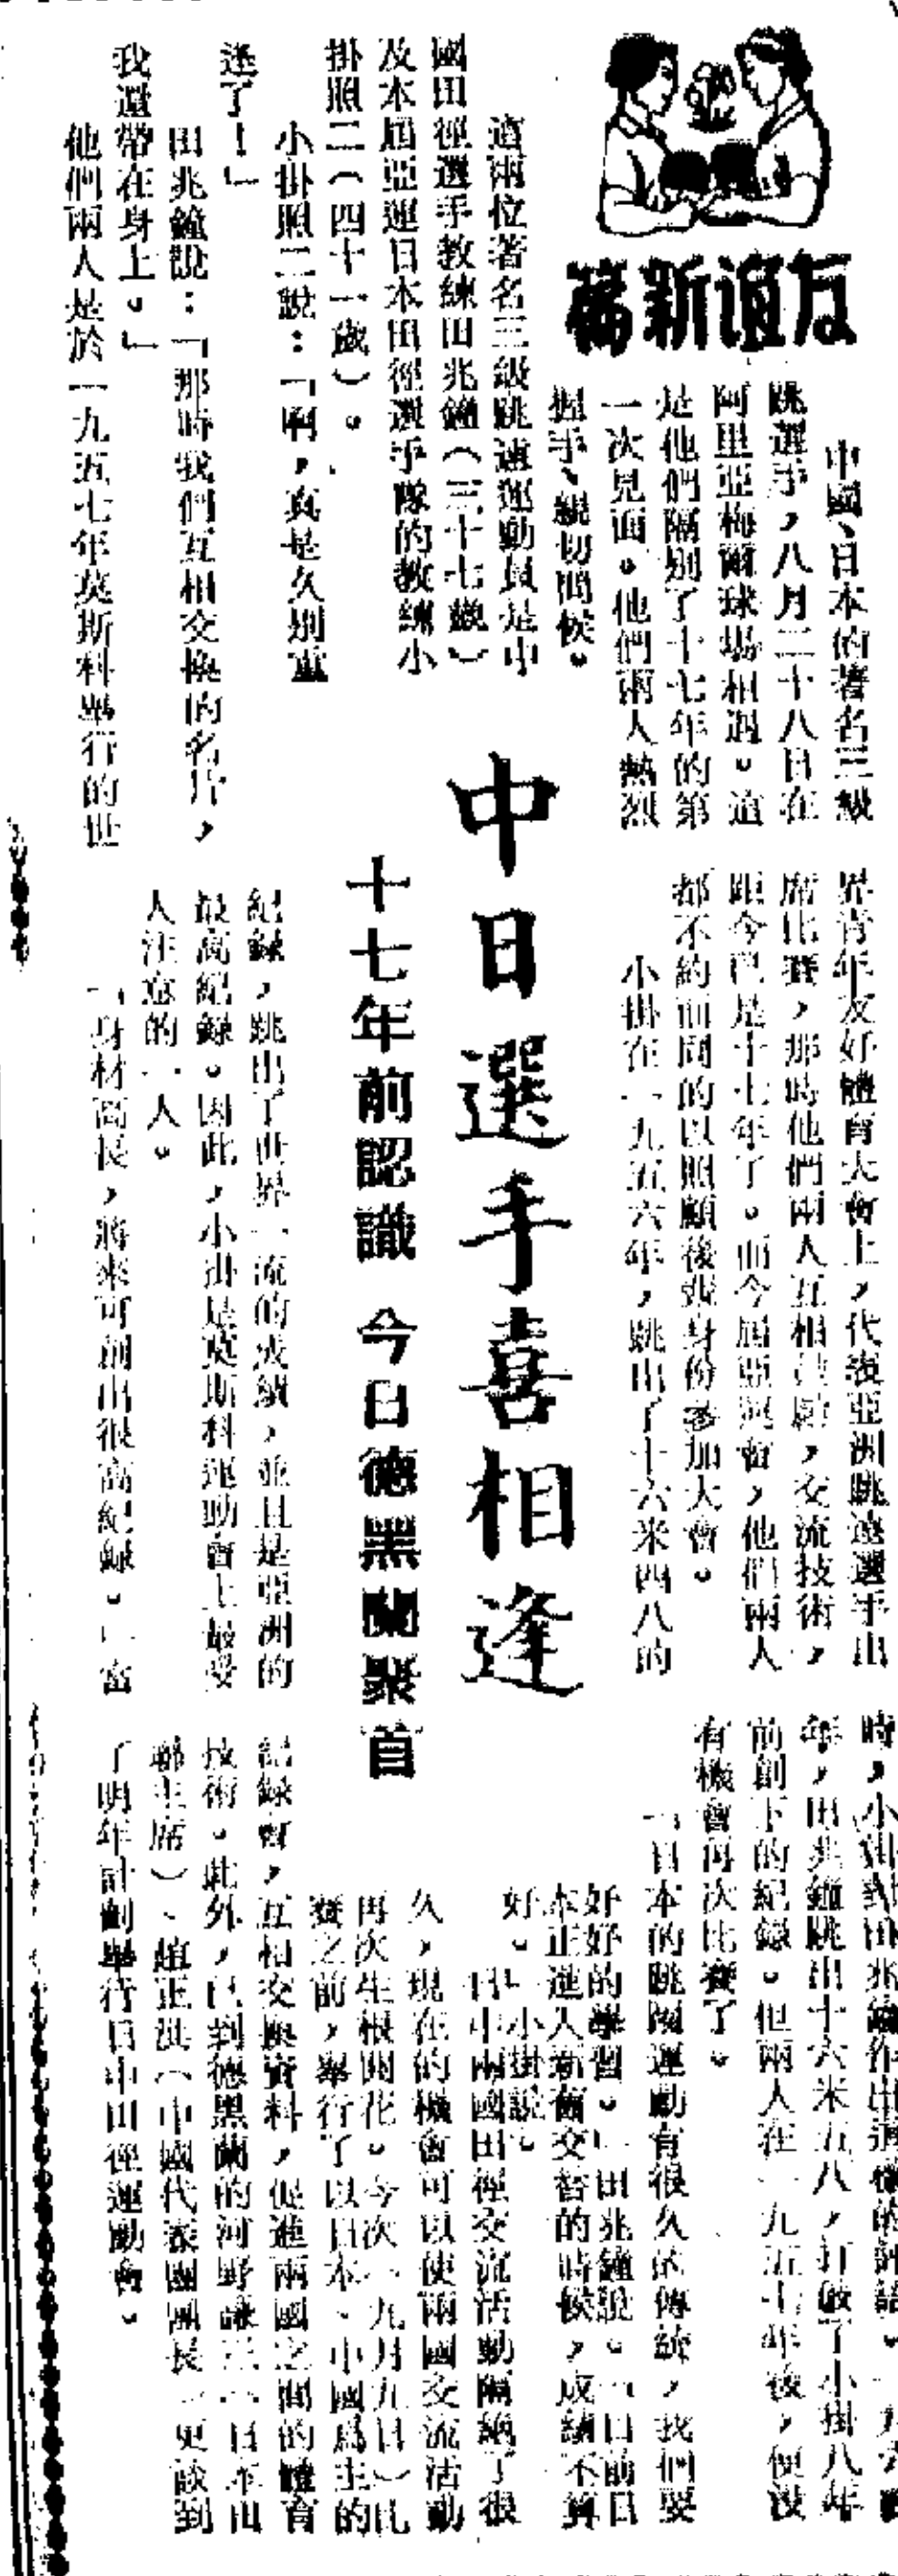 友誼新篇
中日選手喜相逢
十七年前認識 今日德黑蘭聚首
中國、日本的著名三級
跳選手，八月二十八日在
阿里亞梅爾球場相遇。這
是他們隔別了十七年的第
一次見面。他們兩人熱烈
握手、親切問候。
這兩位著名三級跳遠運動員是中
國田徑選手教練田兆鐘（三十七歲）
及本屆亞運日本田徑選手隊的教練小
掛照二（四十一歲）。
小掛照二說：「啊，真是久別重
逢了！」
田兆鐘說：「那時我們互相交換的名片，
我還帶在身上。」
他們兩人是於一九五七年莫斯科舉行的世
界青年友好體育大會上，代表亞洲跳遠選手出
席比賽，那時他們兩人互相，交流技術，
距今已是十七年了。而今屆亞運會，他們兩人
都不約而同的以照顧後輩身份參加大會。
小掛在一九五六年，跳出了十六米四八的
紀錄，跳出了世界一流的成績，並且是亞洲的
最高紀錄。因此，小掛是莫斯科運動會上最受
人注意的一人。
「身材高長，將來可創出很高紀錄。」當
時，小掛對田兆鐘作出這樣的評語。一九六
年，田兆鐘跳出十六米五八，打破了小掛八年
前創下的紀錄。但兩人在一九五七年後，便沒
有機會再次比賽了。
「日本的跳躍運動有很久的傳統，我們要
好好的學習。」田兆鐘說。「目前日
本正進入新舊交替的時候，成績不算
好。」小掛說。
日中兩國田徑交流活動隔絕了很
久，現在的機會可以使兩國交流活動
再次生根開花。今次（九月五日）比
賽之前，舉行了以日本、中國爲主的
紀錄會，互相交換資料，促進兩國之間的體育
技術。此外，已到德黑蘭的河野謙三（日本
聯主席）、趙正洪（中國代表團團長）更談到
了明年計劃舉行日中田徑運動會。